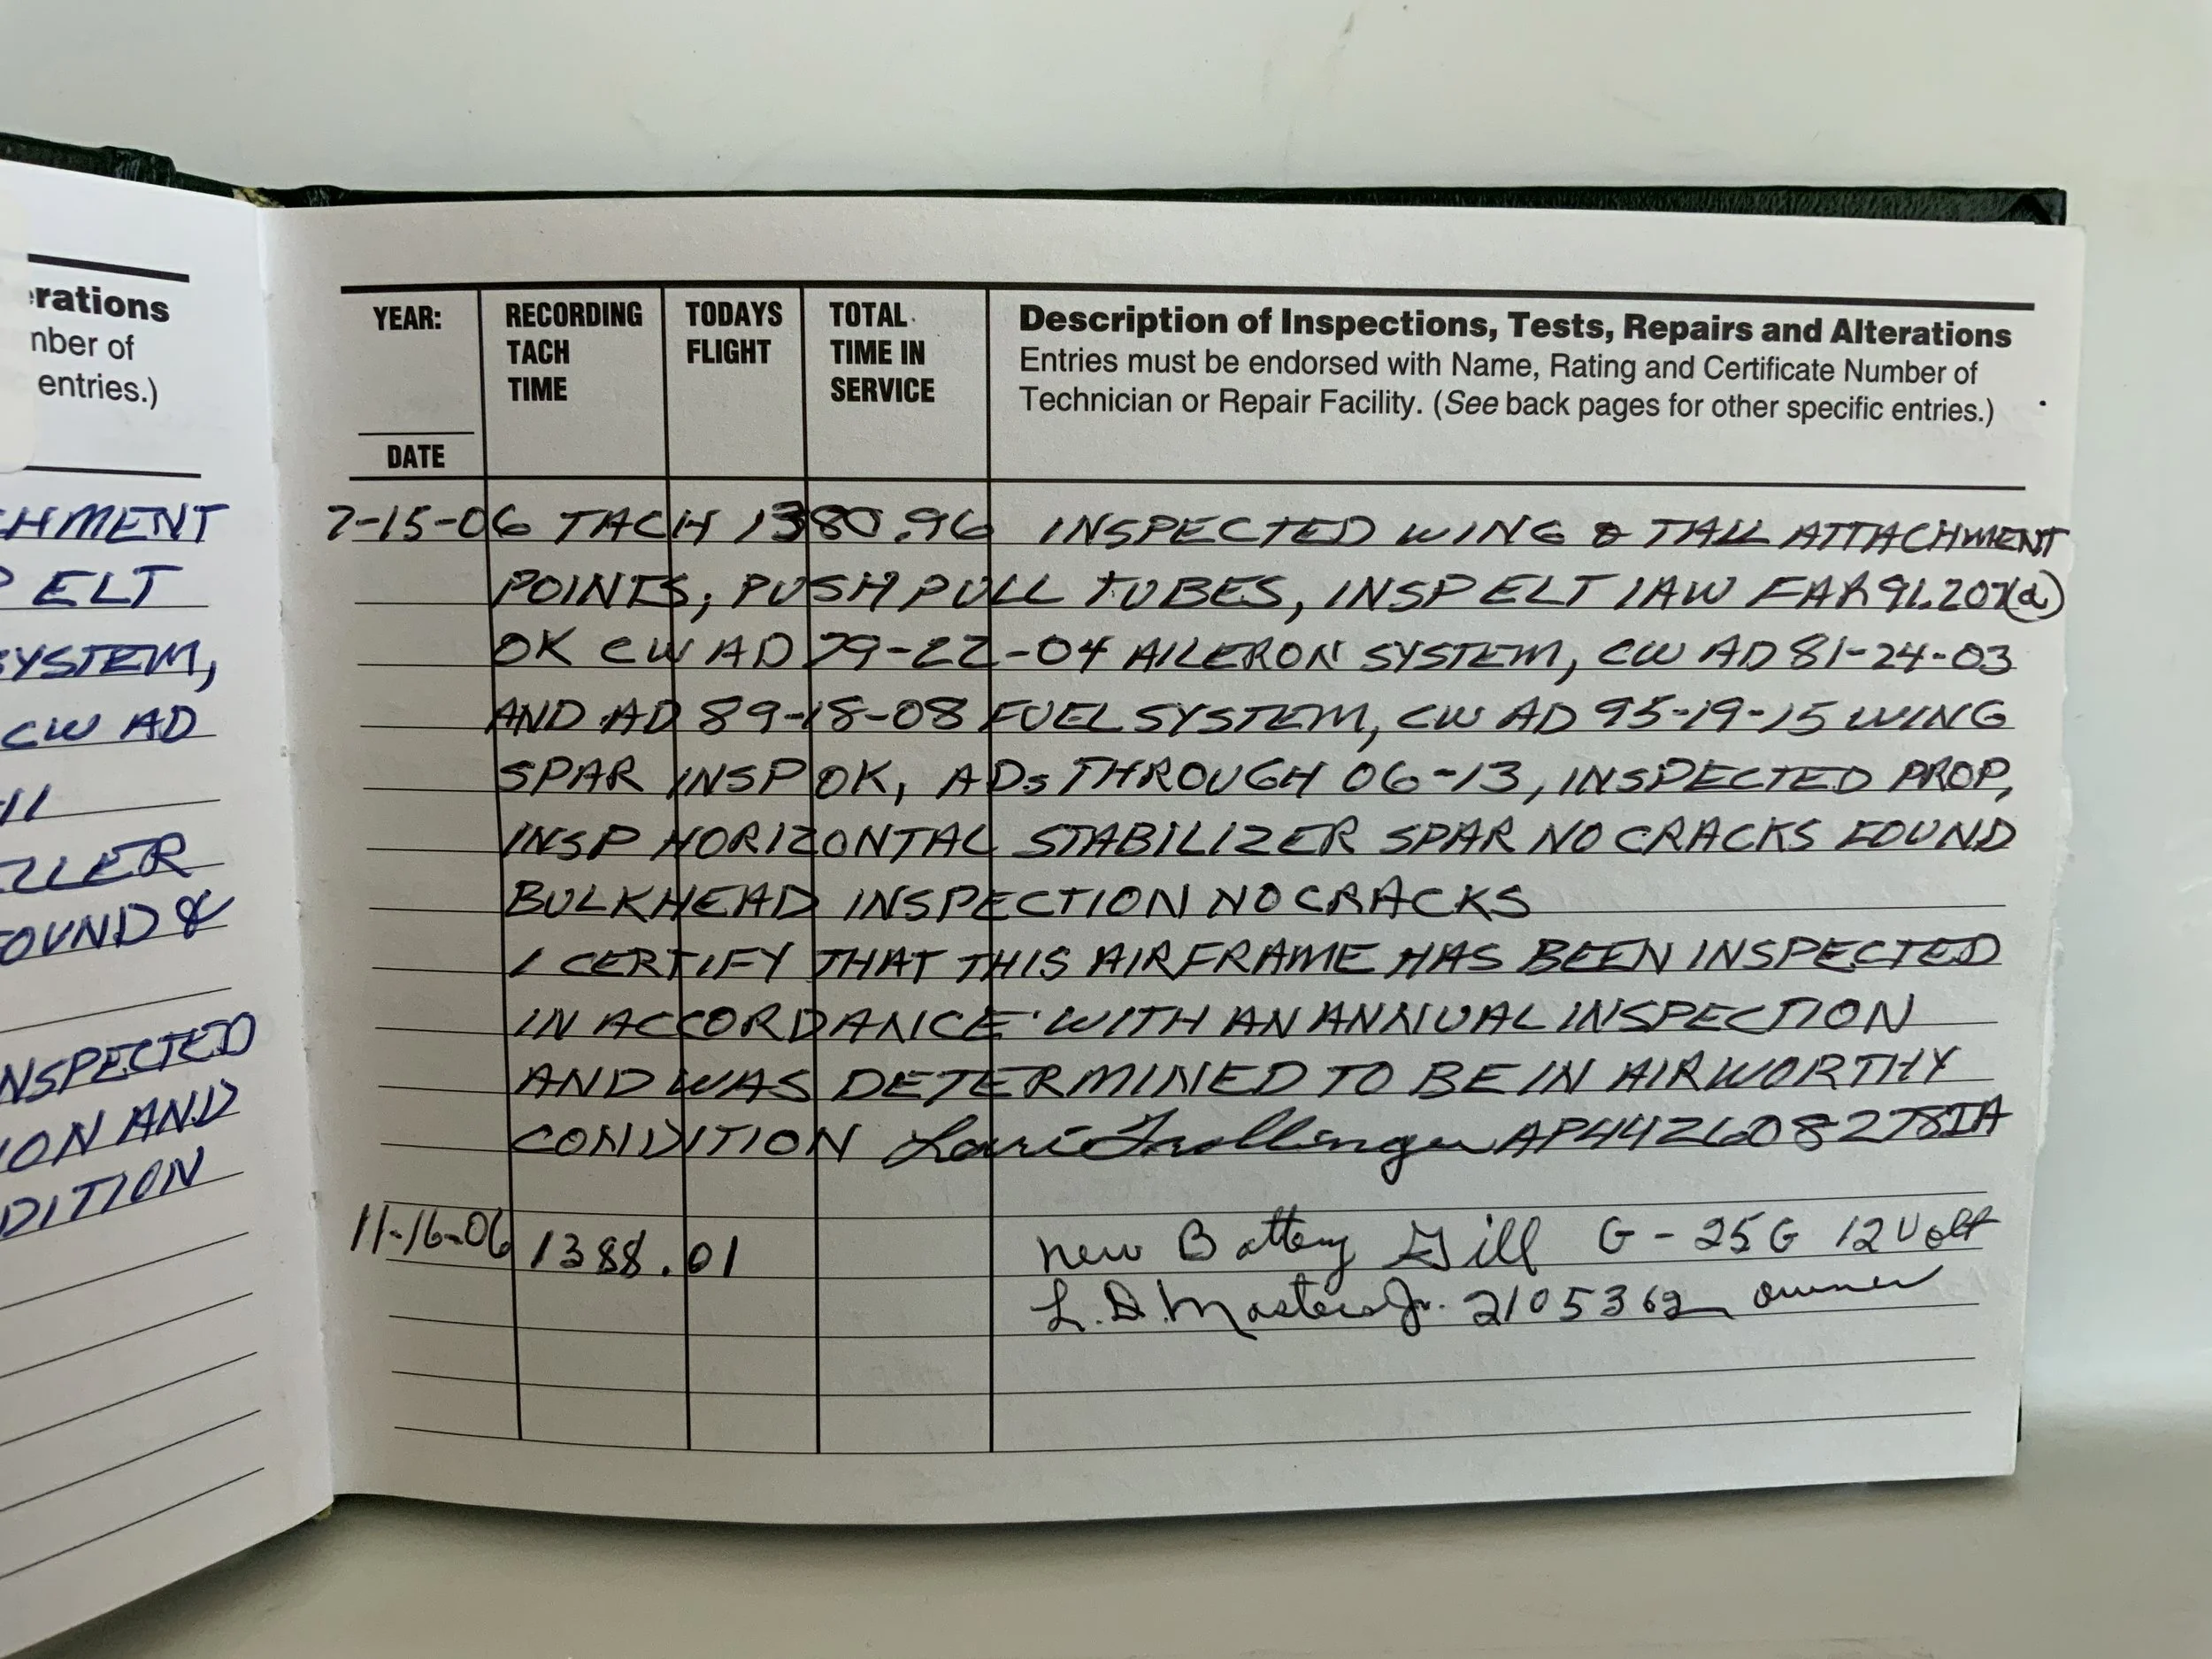 rations
nber of
entries.)
CHMENT
P ELT
SYSTEM,
CW AD
11
LLER
OUND &
NSPECTED
ION AND
DITION
YEAR:
DATE
RECORDING
TACH
TIME
TODAYS
FLIGHT
TOTAL
TIME IN
SERVICE
Description of Inspections, Tests, Repairs and Alterations
Entries must be endorsed with Name, Rating and Certificate Number of
Technician or Repair Facility. (See back pages for other specific entries.)
7-15-06 TACH 1380.96 INSPECTED WING & TAIL ATTACHMENT
POINTS, PUSH PULL TUBES, INSP ELT IAW FAR 91.207(d)
OK CW AD 79-22-04 AILERON SYSTEM, CW AD 81-24-03
AND AD 89-18-08 FUEL SYSTEM, CW AD 95-19-15 WING
SPAR INSP OK, ADs THROUGH 06-13, INSPECTED PROP,
INSP HORIZONTAL STABILIZER SPAR NO CRACKS FOUND
BULKHEAD INSPECTION NO CRACKS
I CERTIFY THAT THIS AIRFRAME HAS BEEN INSPECTED
IN ACCORDANCE WITH AN ANNUAL INSPECTION
AND WAS DETERMINED TO BE IN AIRWORTHY
CONDITION Lori Trollinger AP442608278IA
11-16-06 1388.01 New Battery Gill G-25G 12 Volt
L.D. Masters Jr. 2105362 owner